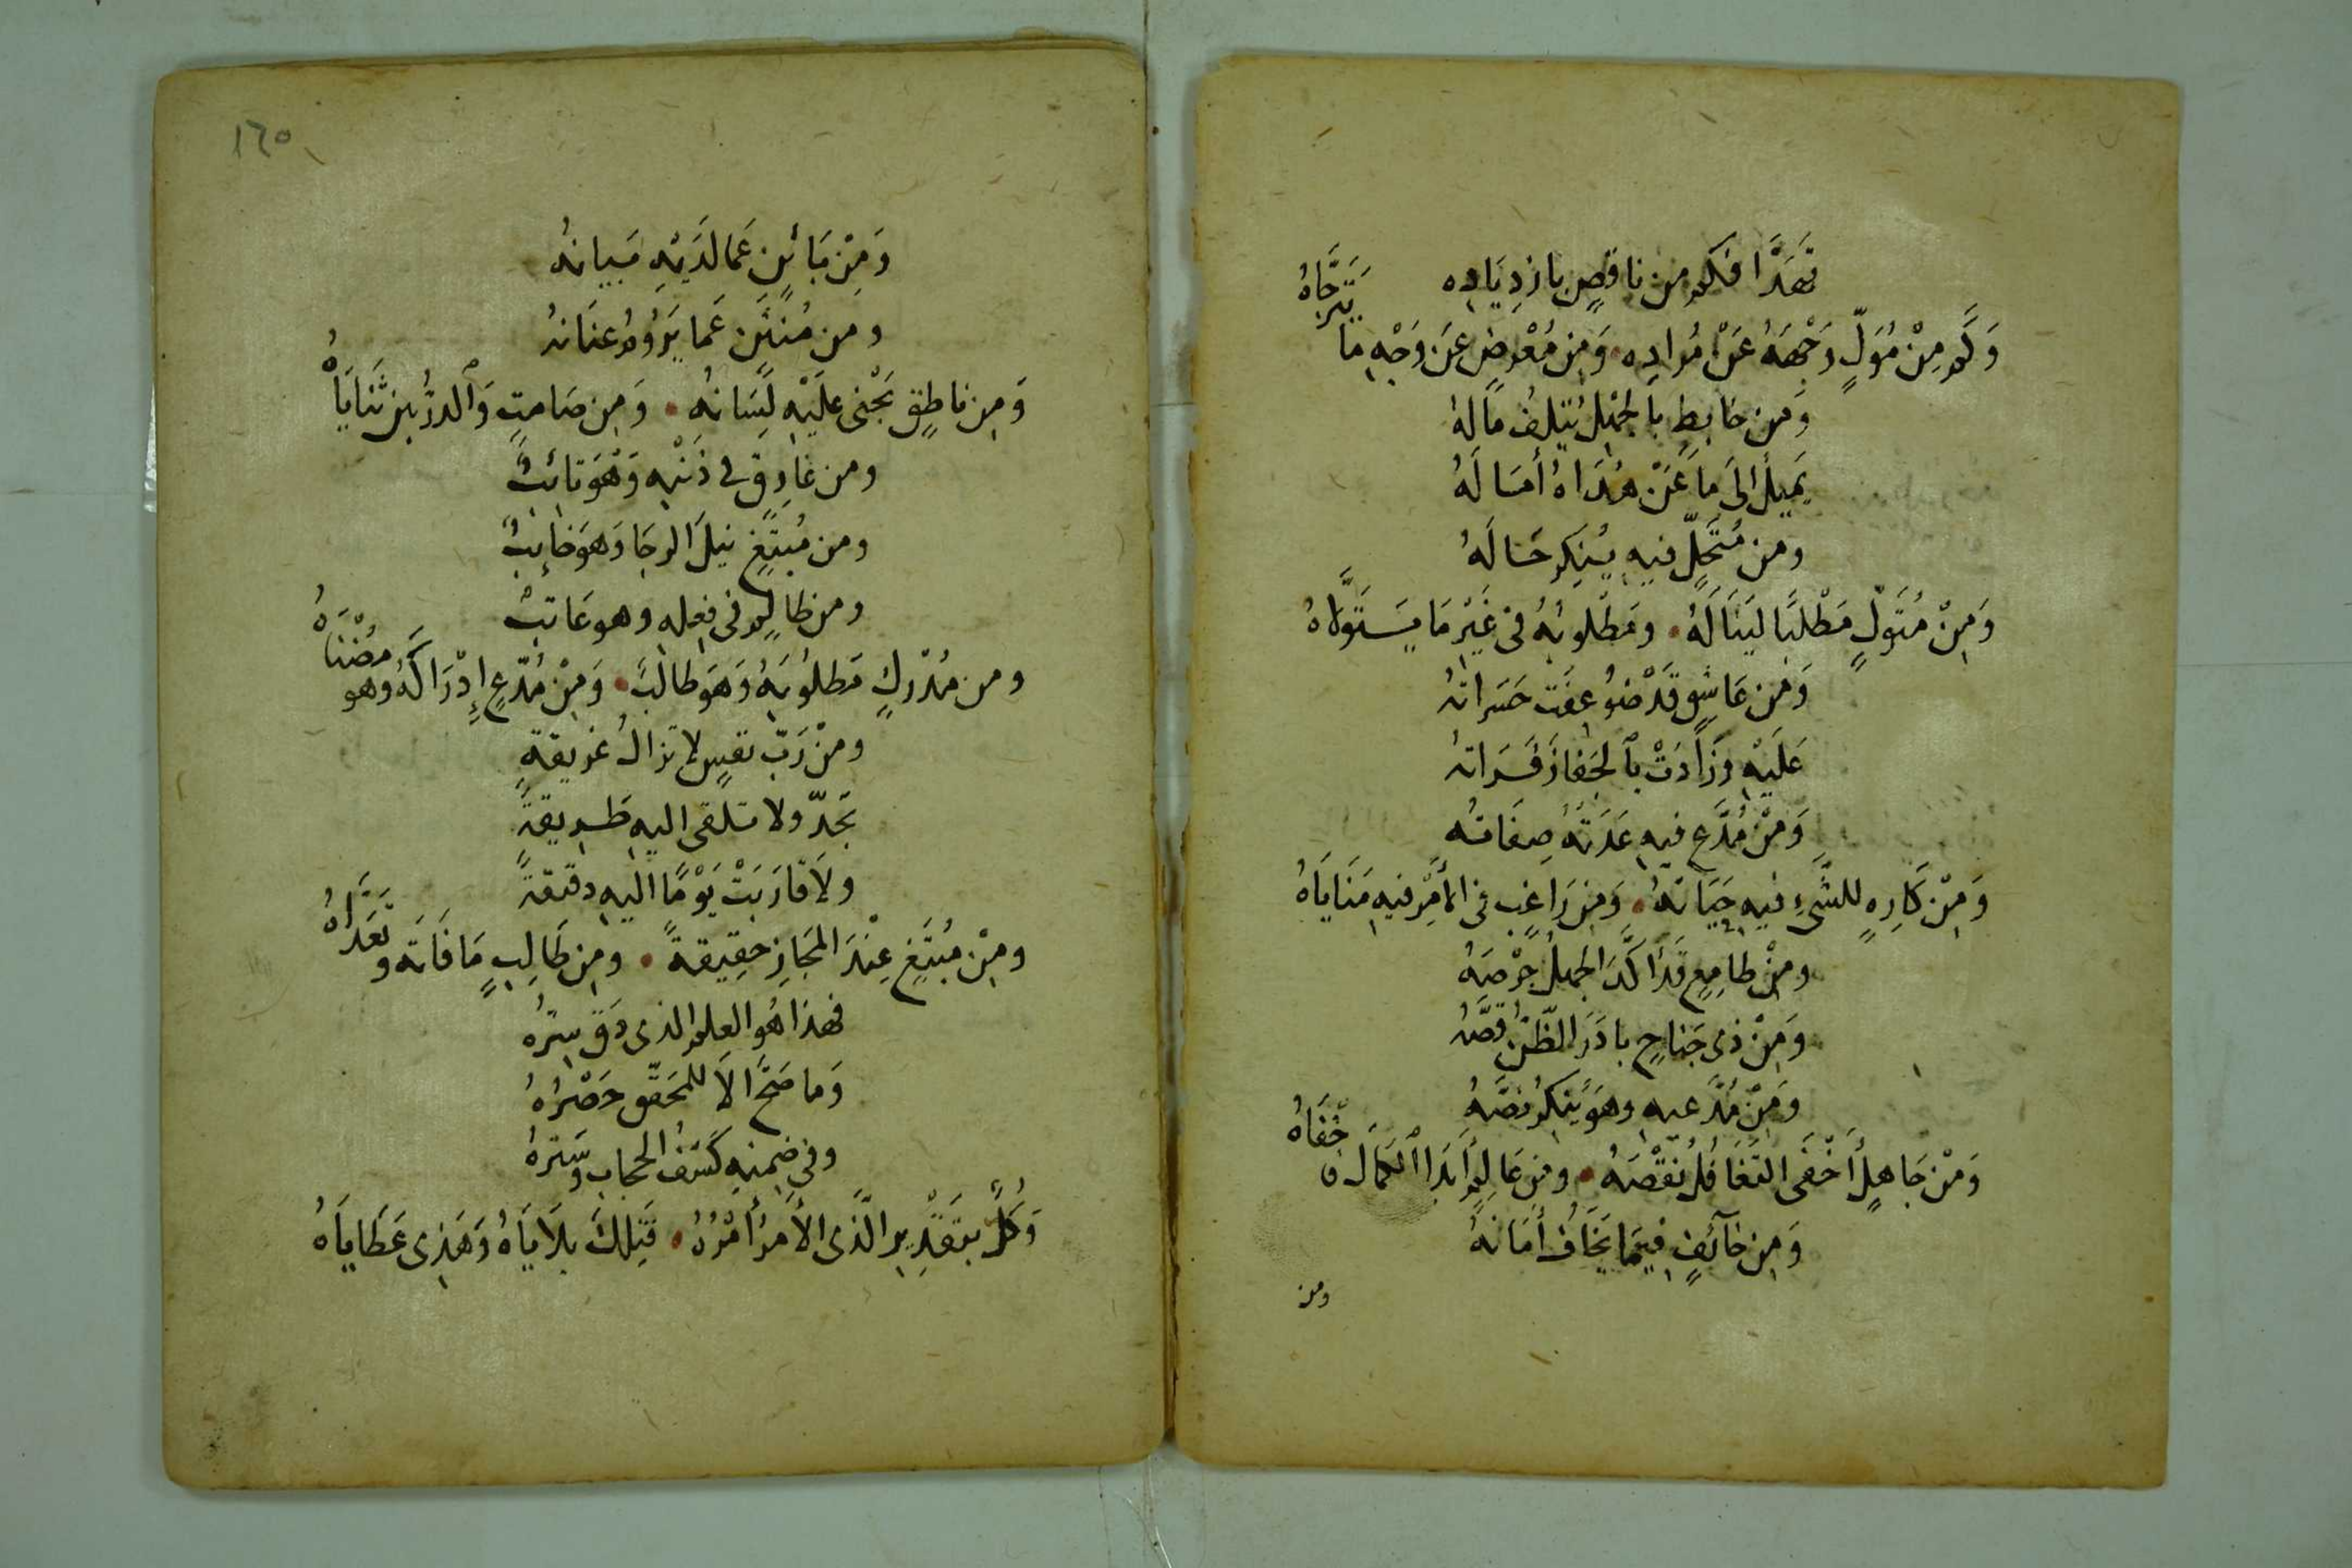 تَهَدَّا فكم من ناقصٍ بازدِيَادِه
وَكَم مِنْ مُوَلٍّ وَجْهَهُ عَنْ مُرادِه • وَمِن مُعْرِضٍ عَن وَجْهِ ما يَتَرَجَّاهُ
وَمن خابطٍ بالجهل يُتلِفُ مالهُ
يَميلُ الىَ مَا عَنْ هُدَاهُ أَمَالَهُ
ومن مُتَحَلٍّ فيه يُنكِر حَالَهُ
وَمِنْ مُتَوَلٍّ مَطْلَبًا لينَالَهُ • ومَطْلوبُهُ فى غَيْرِ مَا يَتَوَلاهُ
وَمن عَاشِقٍ قَدْ ضُوعِفَت حَسَراتهُ
عَلَيْهِ وَزَادَتْ بالجَفا زَفَراتهُ
وَمِنْ مُدَّعٍ فيهِ عَدَتْهُ صِفَاتُه
وَمِنْ كَارِهٍ للشَّىءِ فيهِ حَيَاتهُ • وَمِن رَاغبٍ فى الأَمْرِ فيهِ مَنَايَاهُ
ومِنْ طامِعٍ قَد أكَّدَ الجهلُ حِرْصَهُ
وَمِنْ ذى جَناحٍ بادَرَ الظّنُّ قَصَّهُ
وَمِنْ مُدَّعيه وهوَ يُنكِرُ نصَّهُ
وَمْن جَاهِلٍ أَخْفَى التَّغَافُلُ نقْصَهُ • ومِن عَالِمٍ أَبدَا الكمَالَ خفَاهُ
وَمِن خآئفٍ فيمَا يَخَافُ أَمَانهُ
ومن
١٦٥
وَمِنْ بَائنٍ عَما لدَيْهِ بَيانهُ
ومن مُنثَنٍ عَما يَرُومُ عنَانهُ
وَمِن ناطِقٍ يَجْنى عليْهِ لسَانهُ • وَمِن صَامتٍ وَالدرُّ بين ثَنَايَاهُ
ومن غَارِقٍ فى ذَنْبِه وَهْوَ تائبٌ
ومن مُبتَغٍ نيلَ الرجَا وَهوَ خائِبٌ
ومن ظالمٍ فى فعله وهو عَاتبٌ
ومن مُدْرِكٍ مَطلُوبَهُ وَهوَ طالبٌ • وَمِنْ مُدّعٍ إِدْرَاكَهُ وهو مُضْنَاهُ
ومنْ رَبِّ نفسٍ لا تزالُ غريقةً
تَجدّ ولا تلقى اليهِ طريقةً
ولاَ قارَبَتْ يَوْمًا اليهِ دقيقةً
ومِنْ مُبْتَغٍ عِنْدَ المجَازِ حقِيقةً • ومِن طَالِبٍ مَا فَاتَه وتَعَدَّاهُ
فهذا هُو العلم الذى دَقّ سِترُهُ
وَما صَحَّ الاّ للمحَقّق حَصْرُهُ
وفى ضِمنِهِ كَشفُ الحجابِ وسَترهُ
وَكُلٌّ بتقْدِيرِ الَّذى الأَمرُ أَمْرُهُ • فَتِلكَ بلاَيَاهُ وَهَذِى عَطَايَاهُ